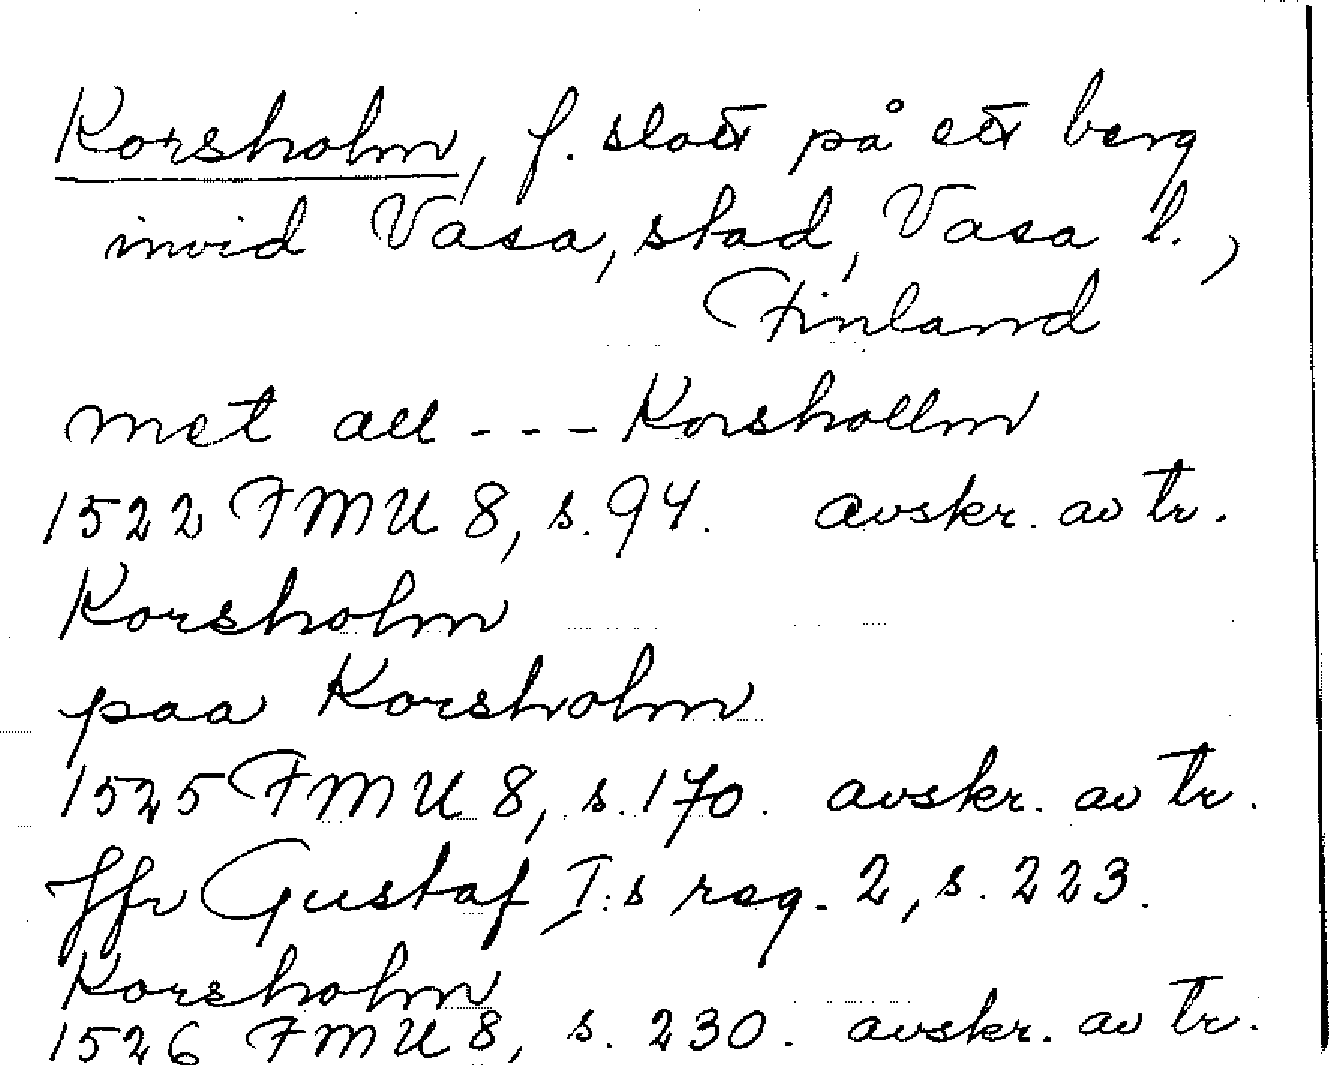 Korsholm, f. slott på ett berg
invid Vasa, stad, Vasa l.,
Finland
met all - - - Korshollm
1522 FMU 8, s. 94. avskr. av tr.
Korsholm
paa Korsholm
1525 FMU 8, s. 170. avskr. av tr.
Jfr Gustaf I:s reg. 2, s. 223.
Korsholm
1526 FMU 8, s. 230. avskr. av tr.